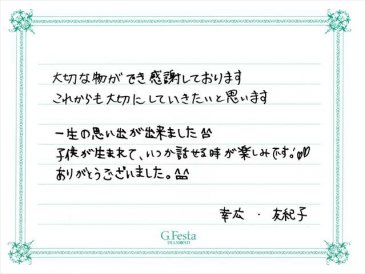 大切な物ができ感謝しております
これからも大切にしていきたいと思います
一生の思い出が出来ました^^
子供が生まれて、いつか話せる時が楽しみです!♡
ありがとうございました。^^
幸広・友紀子
G.Festa
DIAMOND